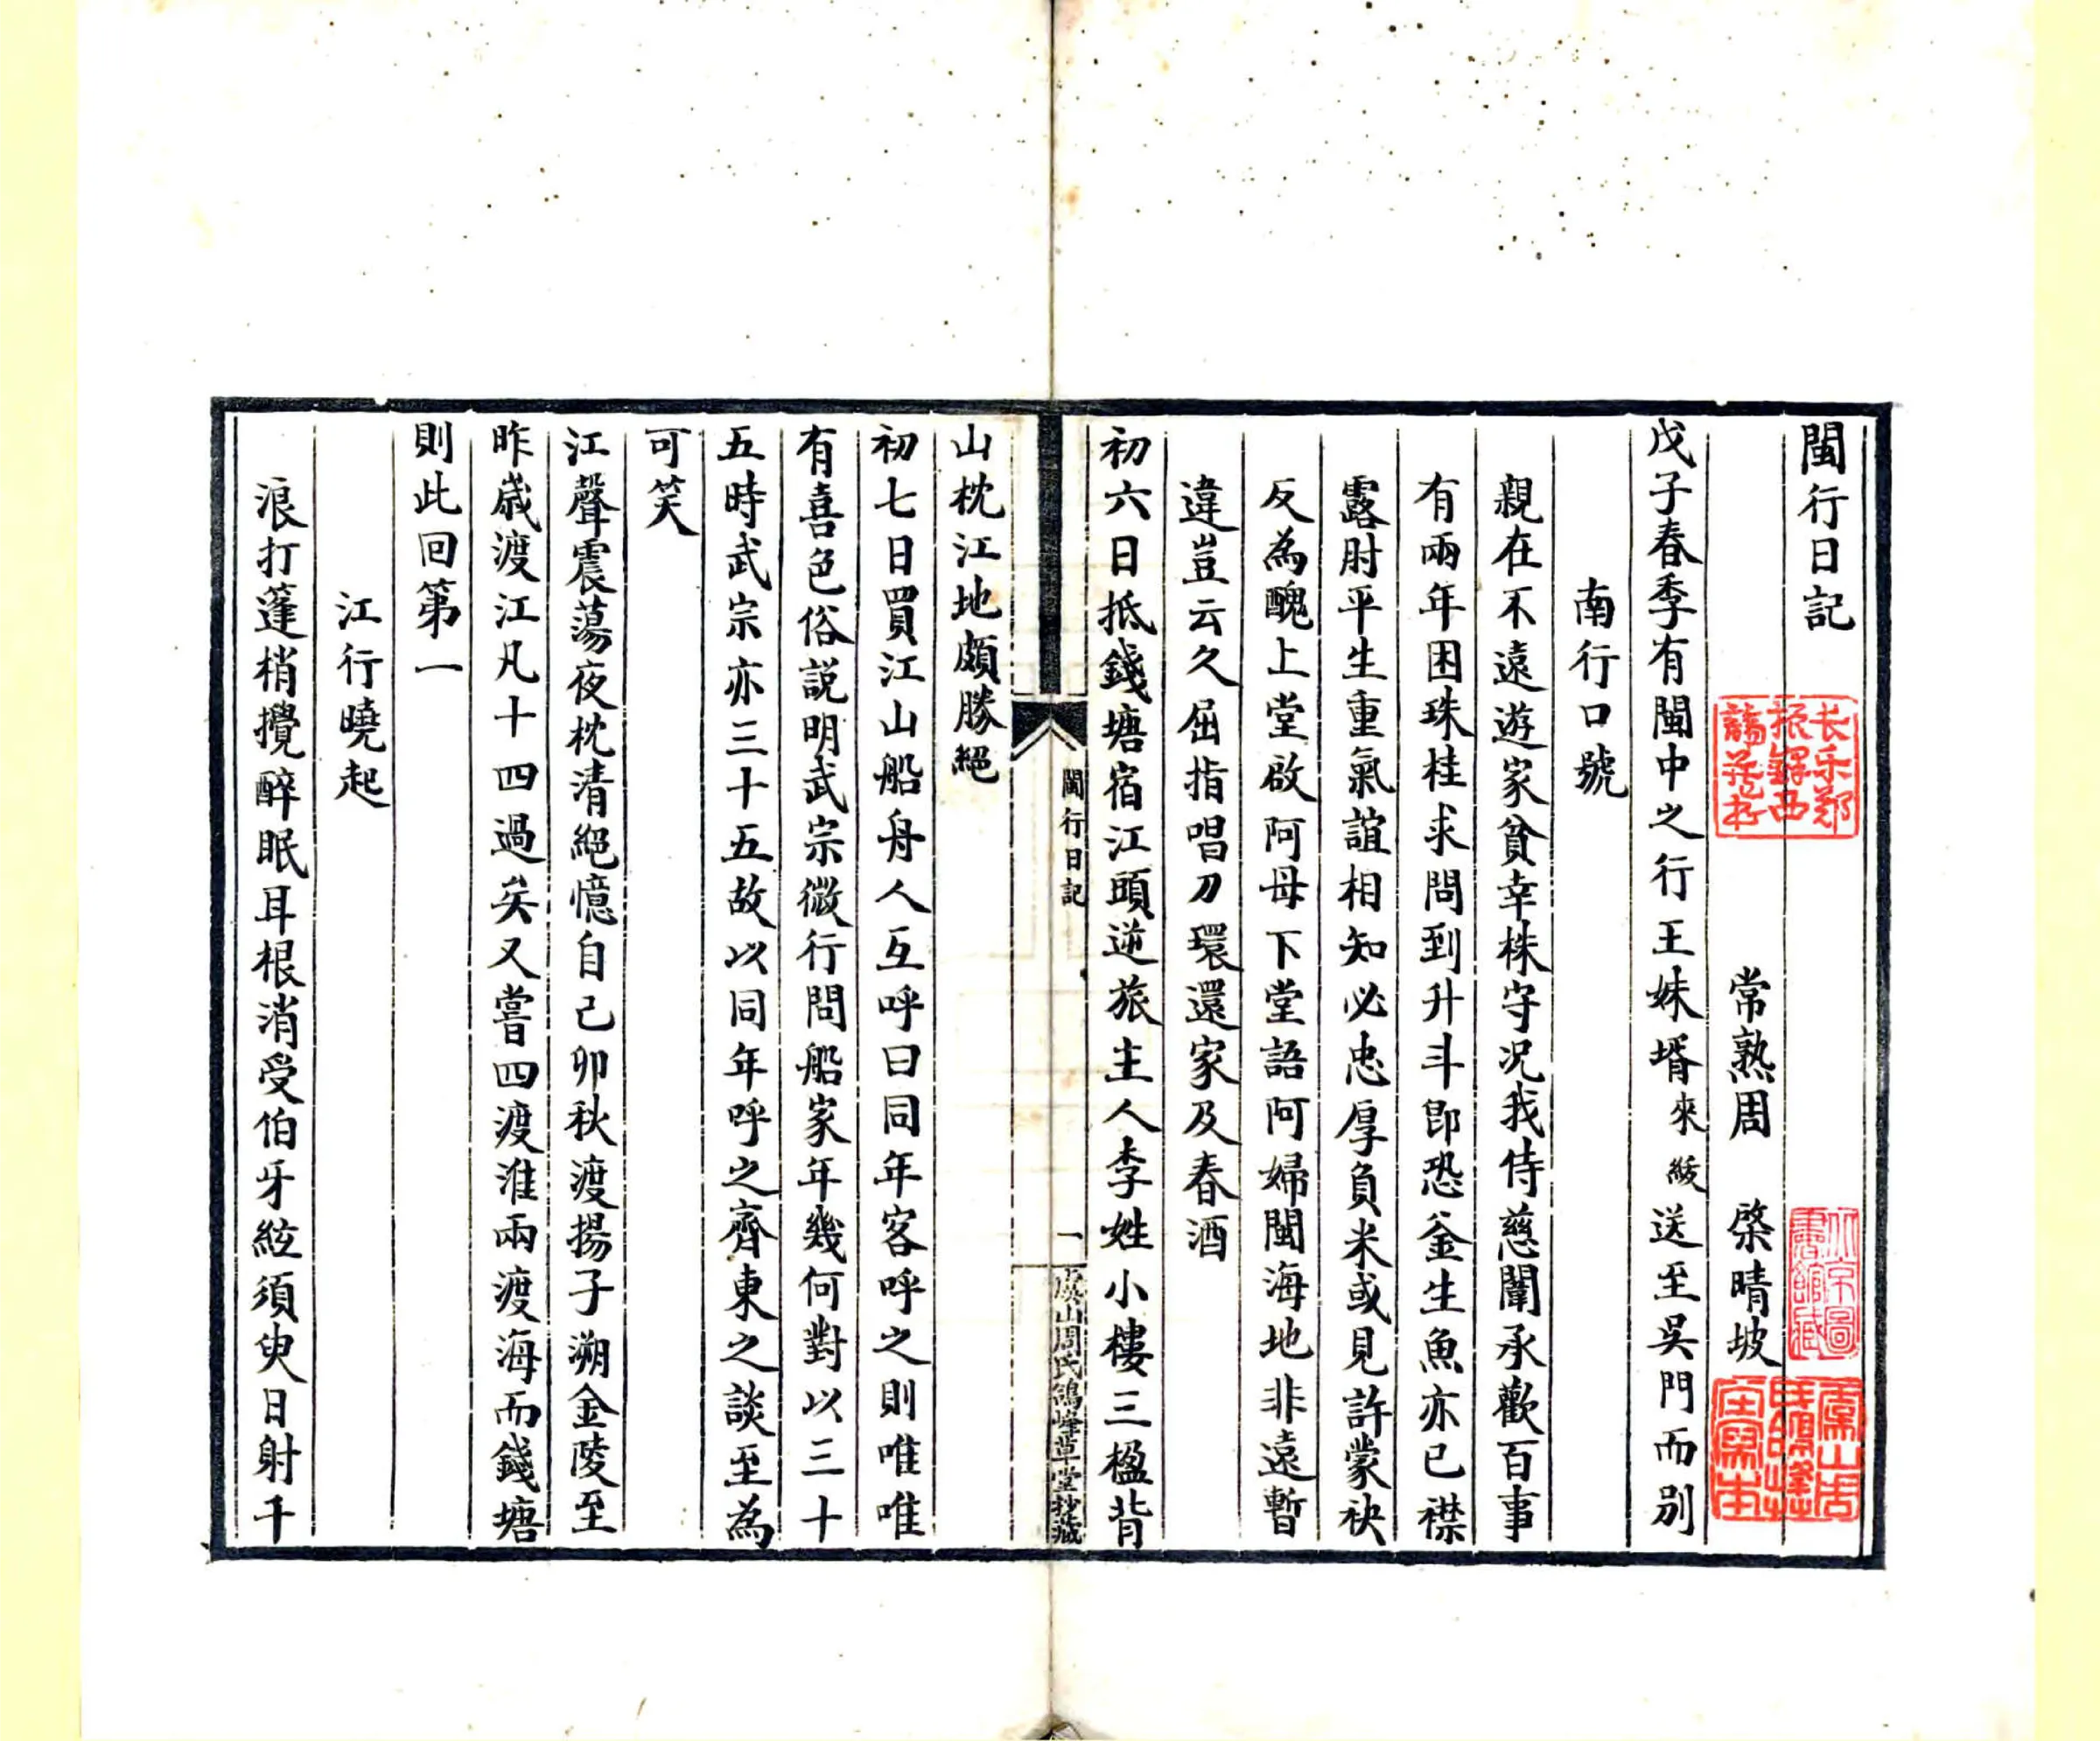 閩行日記
常熟周 棨晴坡
戊子春季有閩中之行王妹壻來綏送至吳門而別
南行口號
親在不遠遊家貧幸株守况我侍慈闈承歡百事
有兩年困珠桂求問到升斗卽恐釜生魚亦已襟
露肘平生重氣誼相知必忠厚負米或見許蒙袂
反為醜上堂啟阿母下堂語阿婦閩海地非遠暫
違豈云久屈指唱刀環還家及春酒
初六日抵錢塘宿江頭逆旅主人李姓小樓三楹背
閩行日記
一
虞山周氏鴿峰草堂抄藏
山枕江地頗勝絕
初七日買江山船舟人互呼曰同年客呼之則唯唯
有喜色俗説明武宗微行問船家年幾何對以三十
五時武宗亦三十五故以同年呼之齊東之談至為
可笑
江聲震蕩夜枕清絕憶自己卯秋渡揚子溯金陵至
昨歲渡江凡十四過矣又嘗四渡淮兩渡海而錢塘
則此回第一
江行曉起
浪打篷梢攪醉眠耳根消受伯牙絃須臾日射千
长乐郑
振鐸西
諦藏书
北京圖
書館藏
虞山周
氏鴿峰
艸堂寫本